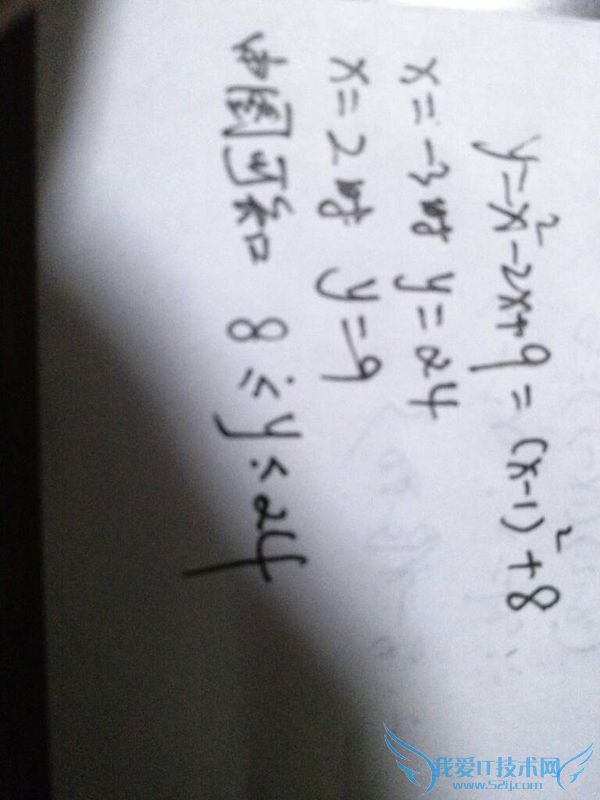 y=x²-2x+9=(x-1)²+8
x=-3时 y=24
x=2时 y=9
由图可知 8≤y≤24
我爱IT技术网
www.52ij.com